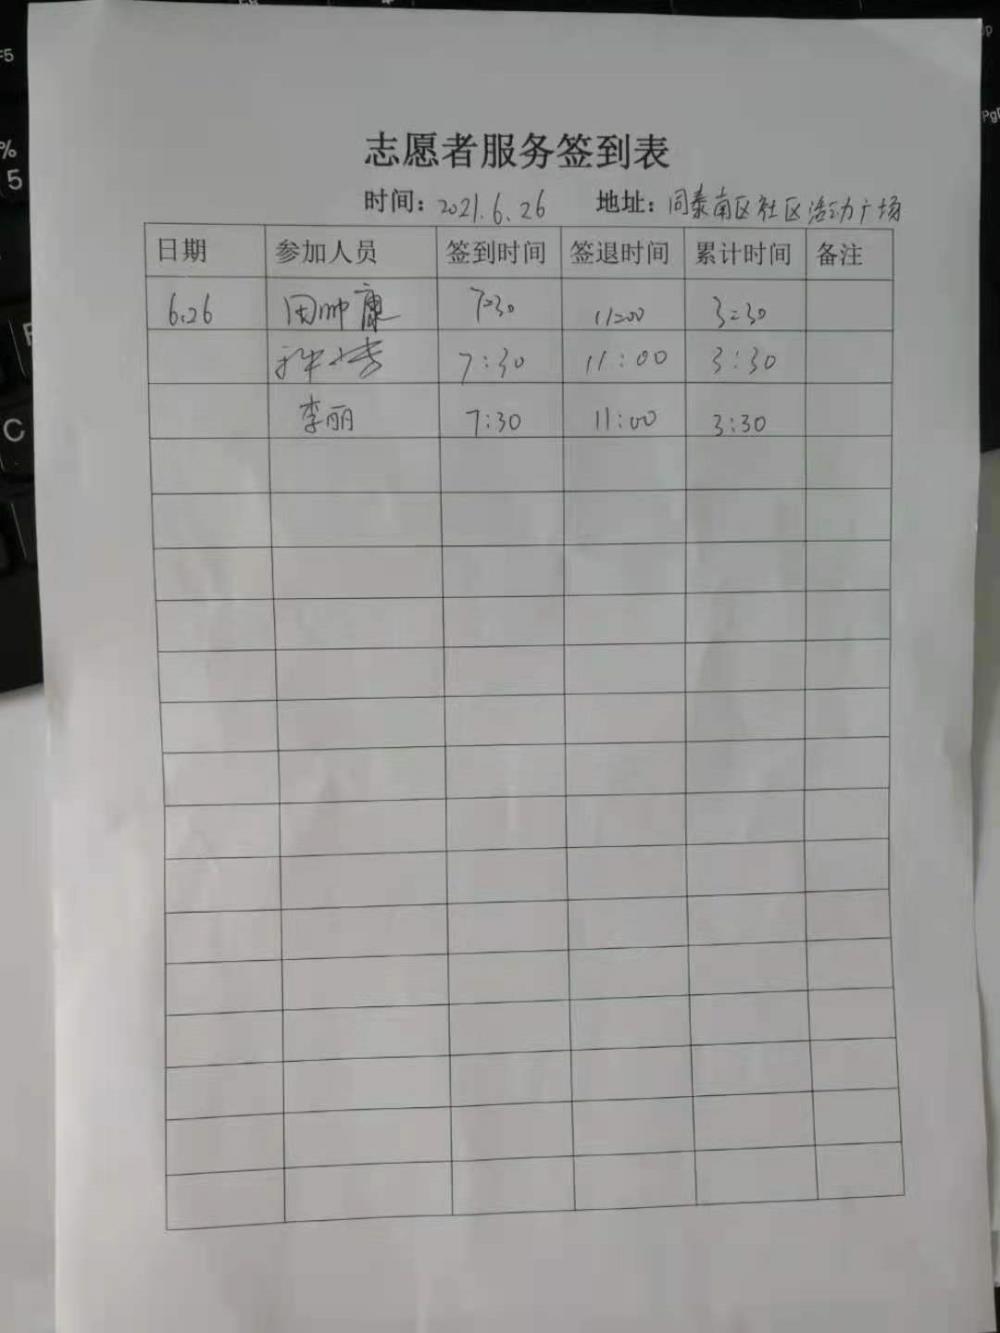 志愿者服务签到表
时间：2021.6.26 地址：同泰南区社区活动广场
日期 参加人员 签到时间 签退时间 累计时间 备注
6.26 田帅康 7:30 11:00 3:30
7:30 11:00 3:30
李丽 7:30 11:00 3:30
F5
%
5
C
PgD